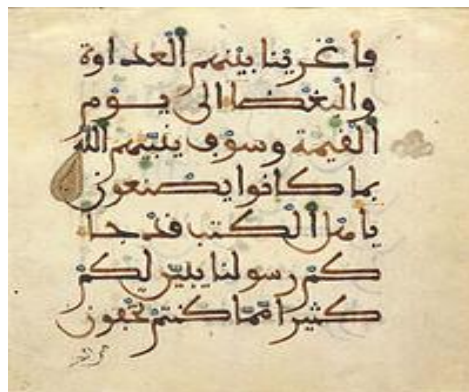 فأغرينا بينهم العداوة
والبغضا الى يوم
القيمة وسوف ينبيهم الله
بما كانوا يصنعون
ياهل الكتب قد جا
كم رسولنا يبين لكم
كثيرا مما كنتم تخفون